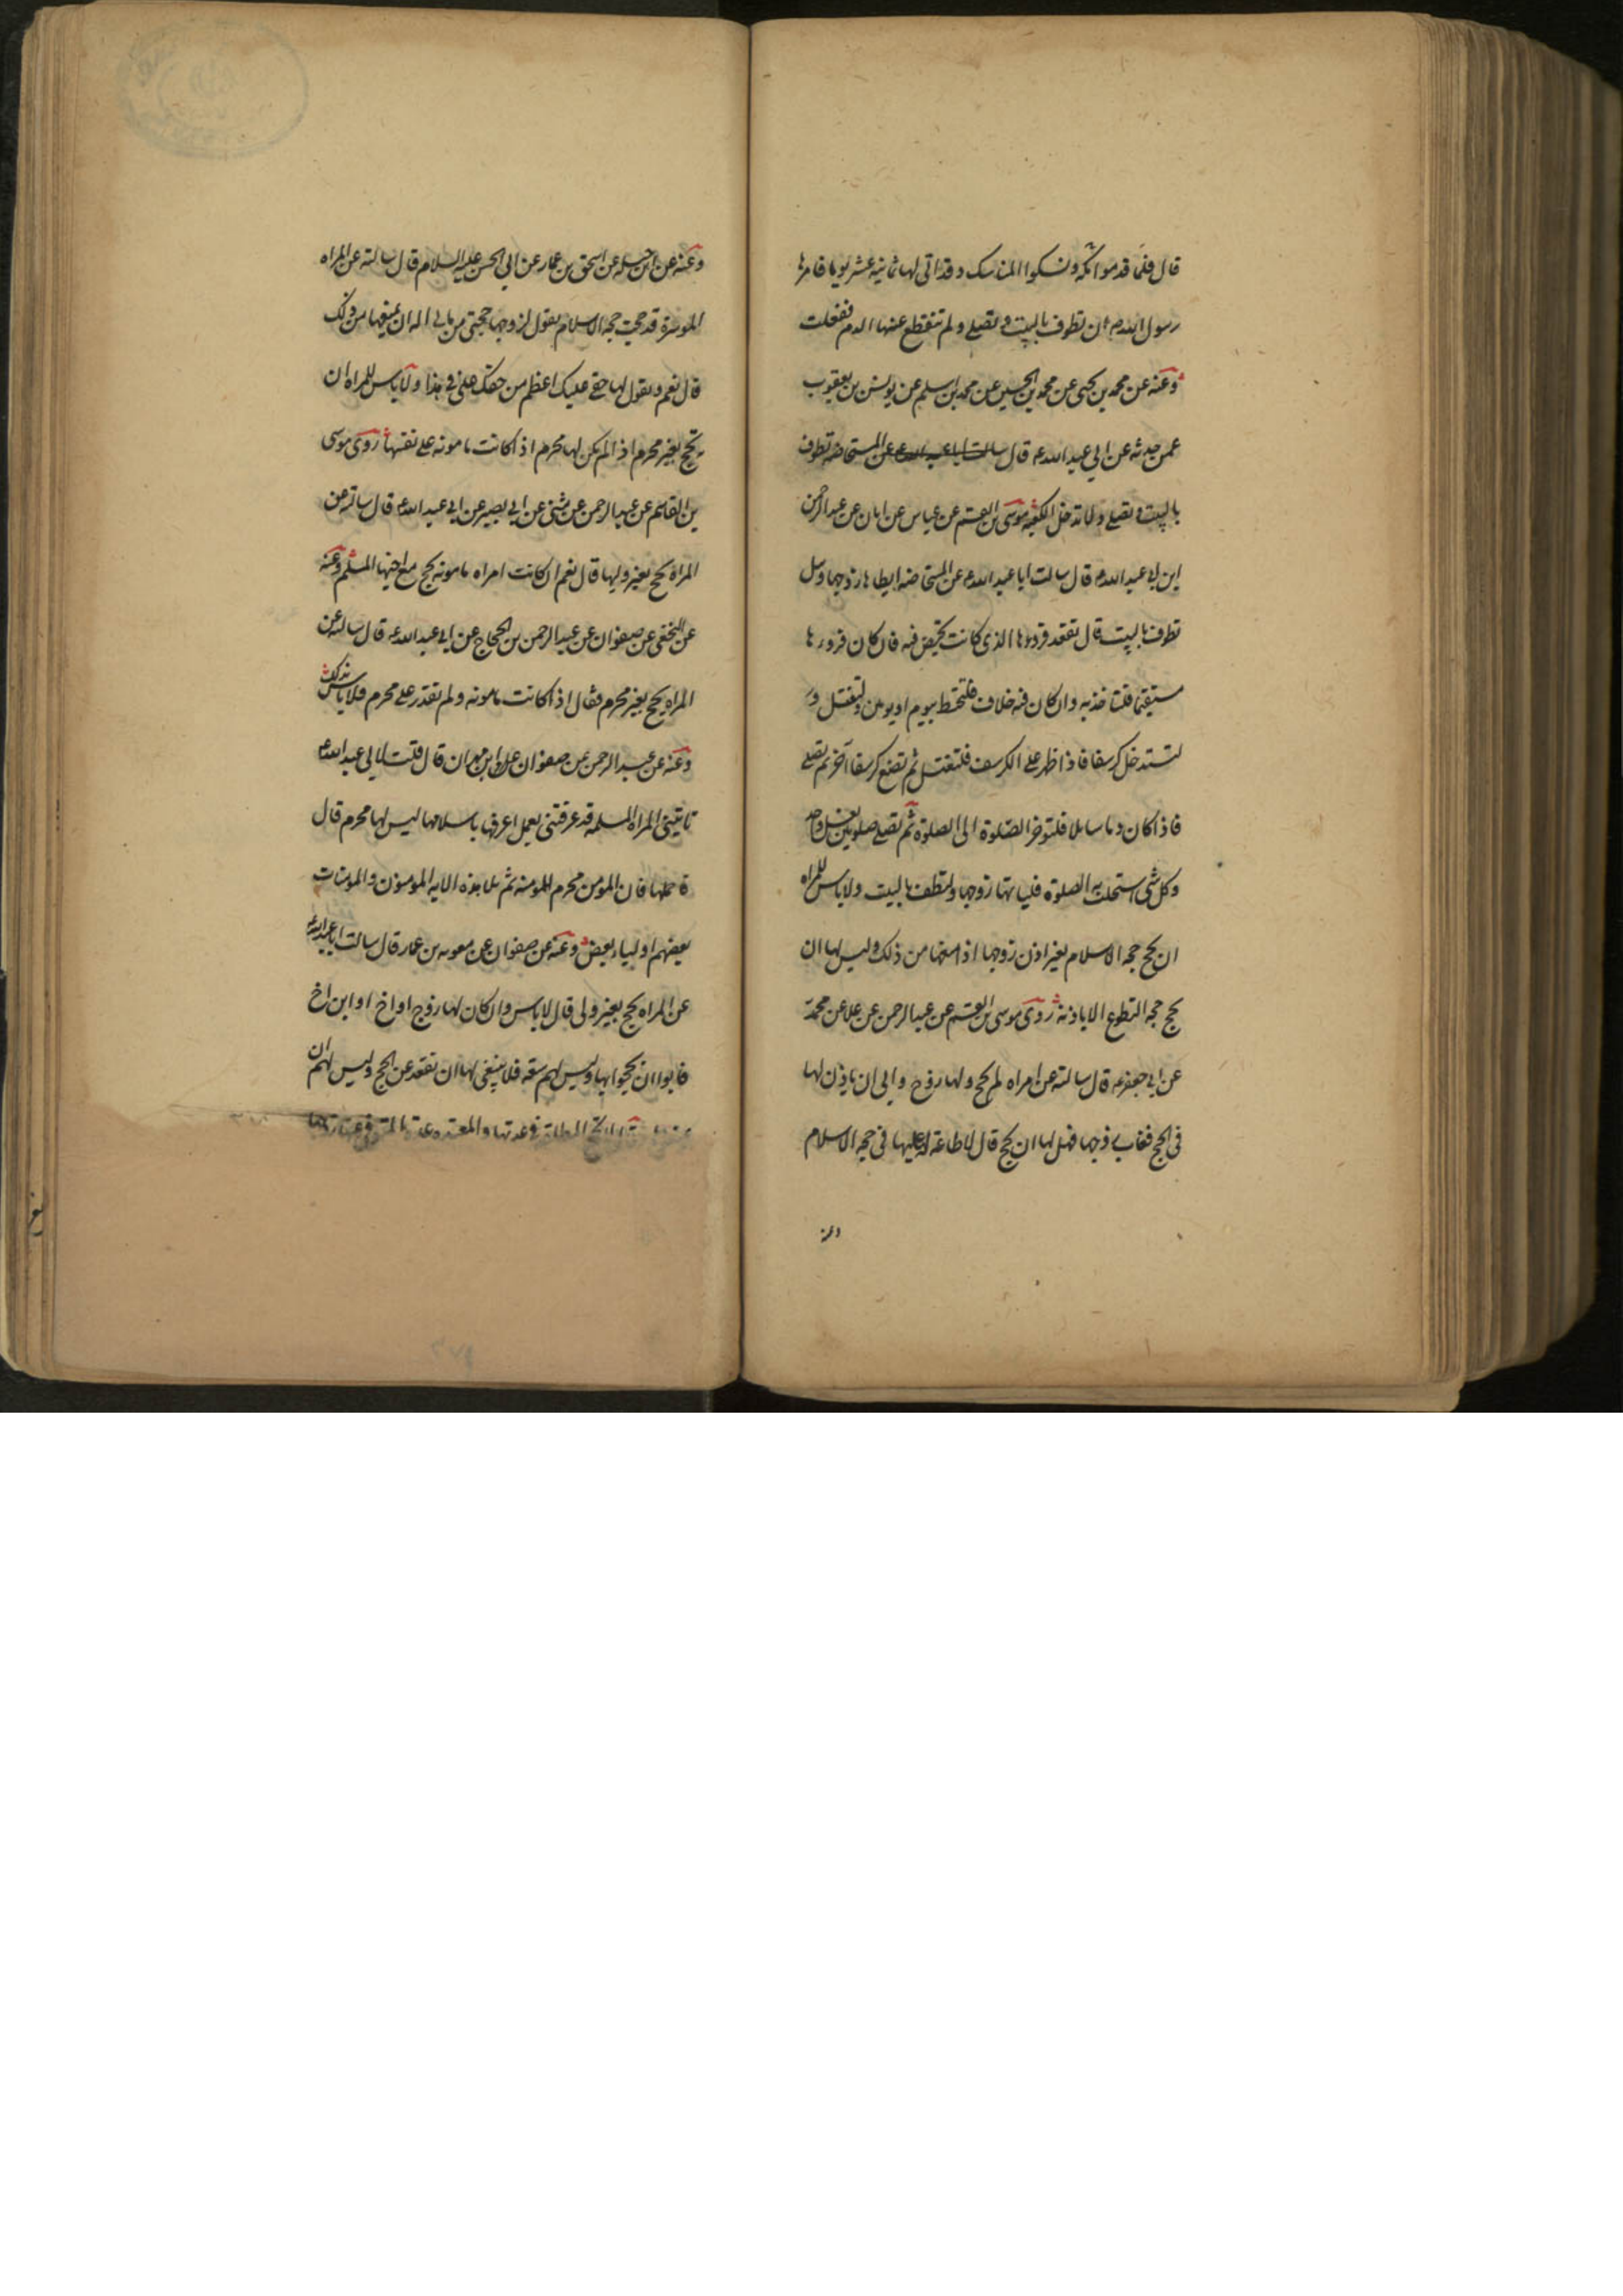 قال فلما قدموا مكه ونسكوا المناسك وقد اتى لها ثمانيه عشر يوما فامرها
رسول الله ص ان تطوف بالبيت وتصلي ولم تنقطع عنها الدم ففعلت
وعنه عن محمد بن يحيى عن محمد بن الحسين عن محمد بن اسلم عن يونس بن يعقوب
عمن حدثه عن ابي عبد الله ع قال سالت ابا عبد الله ع عن المستحاضه تطوف
بالبيت وتصلي ولا تدخل الكعبه موسى بن القسم عن عباس عن ابان عن عبد الرحمن
ابن ابي عبد الله ع قال سالت ابا عبد الله ع عن المستحاضه ايطاها زوجها وهل
تطوف بالبيت قال تقعد قروها الذى كانت تحيض فيه فان كان قروءها
مستقيما فلتاخذ به وان كان فيه خلاف فلتحتط بيوم او يومين ولتغتسل و
لتستدخل كرسفا فاذا ظهر على الكرسف فلتغتسل ثم تضع كرسفا آخر ثم تصلي
فاذا كان دما سايلا فلتوخر الصلوة الى الصلوة ثم تصلي صلوتين بغسل واحد
وكل شى استحلت به الصلوة فلياتها زوجها ولتطف بالبيت ولا باس للمراه
ان تحج حجه الاسلام بغير اذن زوجها اذا منعها من ذلك وليس لها ان
تحج حجه التطوع الا باذنه روى موسى بن القسم عن عبد الرحمن عن علا عن محمد
عن ابي جعفر ع قال سالته عن امراه لم تحج ولها زوج وابى ان ياذن لها
فى الحج فغاب زوجها فهل لها ان تحج قال لا طاعة له عليها فى حجه الاسلام
وعنه
وعنه عن ابن جبله عن اسحق بن عمار عن ابي الحسن عليه السلام قال سالته عن المراه
الموسرة قد حجت حجه الاسلام يقول لزوجها حجنى من مالى اله ان يمنعها من ذلك
قال نعم ويقول لها حقى عليك اعظم من حقك على فى هذا ولا باس للمراه ان
تحج بغير محرم اذا لم يكن لها محرم اذا كانت مامونه على نفسها روى موسى
بن القاسم عن عبد الرحمن عن مثنى عن ابي بصير عن ابي عبد الله ع قال سالته عن
المراه تحج بغير وليها قال نعم ان كانت امراه مامونه تحج مع اخيها المسلم وعنه
عن النخعى عن صفوان عن عبد الرحمن بن الحجاج عن ابي عبد الله ع قال سالته عن
المراه تحج بغير محرم فقال اذا كانت مامونه ولم تقدر على محرم فلا باس بذلك
وعنه عن عبد الرحمن عن صفوان بن مهران قال قلت لابى عبد الله ع
تاتينى المراه المسلمه قد عرفتنى بعمل اعرفها باسلامها ليس لها محرم قال
فاحملها فان المؤمن محرم للمومنه ثم تلا هذه الايه المومنون والمومنات
بعضهم اولياء بعض وعنه عن صفوان عن معويه بن عمار قال سالت ابا عبد الله ع
عن المراه تحج بغير ولى قال لا باس وان كان لها زوج او اخ او ابن اخ
فابوا ان يحجوا بها وليس لهم سعه فلا ينبغى لها ان تقعد عن الحج وليس لهم ان
تحج المطلقة فى عدتها والمعتده عدة المتوفى عنها زوجها